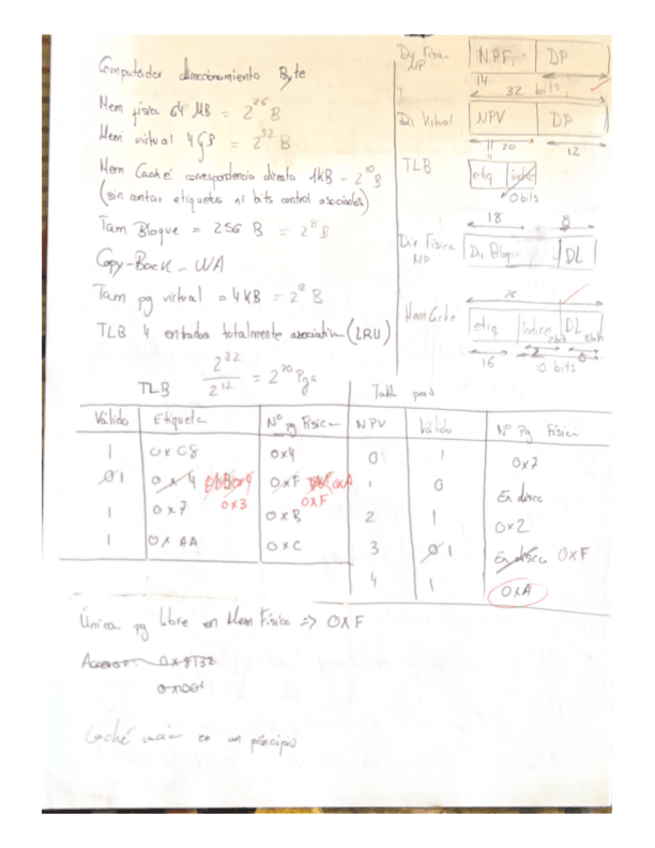 Computador direccionamiento Byte
Mem física 64 MB = 2^26 B
Mem virtual 4 GB = 2^32 B
Mem Caché correspondencia directa 1KB - 2^10 B
(sin contar etiquetas ni bits control asociados)
Tam Bloque = 256 B = 2^8 B
Copy-Back - WA
Tam pg virtual = 4 KB = 2^12 B
TLB 4 entradas totalmente asociativa (LRU)
2^32 / 2^12 = 2^20 Pgs
Dir Física MP
NPF DP
14
32 bits
Dir Virtual
NPV DP
20 12
TLB
etiq índice
0 bits
18 8
Dir Física MP
Dir Bloque DL
26
Mem Cache
etiq índice DL
2bit 8bits
16 10 bits
TLB
Válido Etiqueta Nº pg Física
1 0xC8 0x4
0 1 0x4 0x3 0xF 0xA 0xF
1 0x7 0xB
1 0xAA 0xC
Tabl pags
NPV Válido Nº Pg Física
0 1 0x7
1 0 En disco
2 1 0x2
3 0 1 En disco 0xF
4 1 0xA
Única pg libre en Mem Física => 0xF
Accesos: 0x8132
Caché vacía en un principio